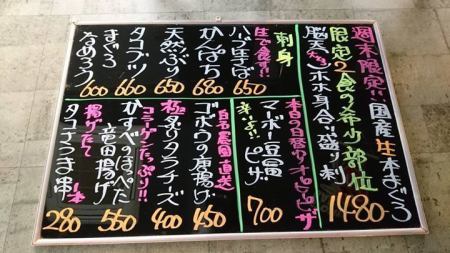 週末限定!! 国産生本まぐろ
限定2食の希少部位
脳天 ホホ身合い盛り刺
1480
刺身
生で食す!!
ハブ生ゆば 650
かんぱち 680
天然ぶり 650
タコブツ 660
まぐろ
なめろう 600
本日の日替りオピピザ
辛いよ!!
マーボー豆冨
ピザ 700
自社農園直送
ゴボウの唐揚げ 450
極 名身タラチーズ 400
コラーゲンたっぷり!!
かすべのほっぺた
竜田揚げ 550
揚げたて
タコザンマ串 1本 280